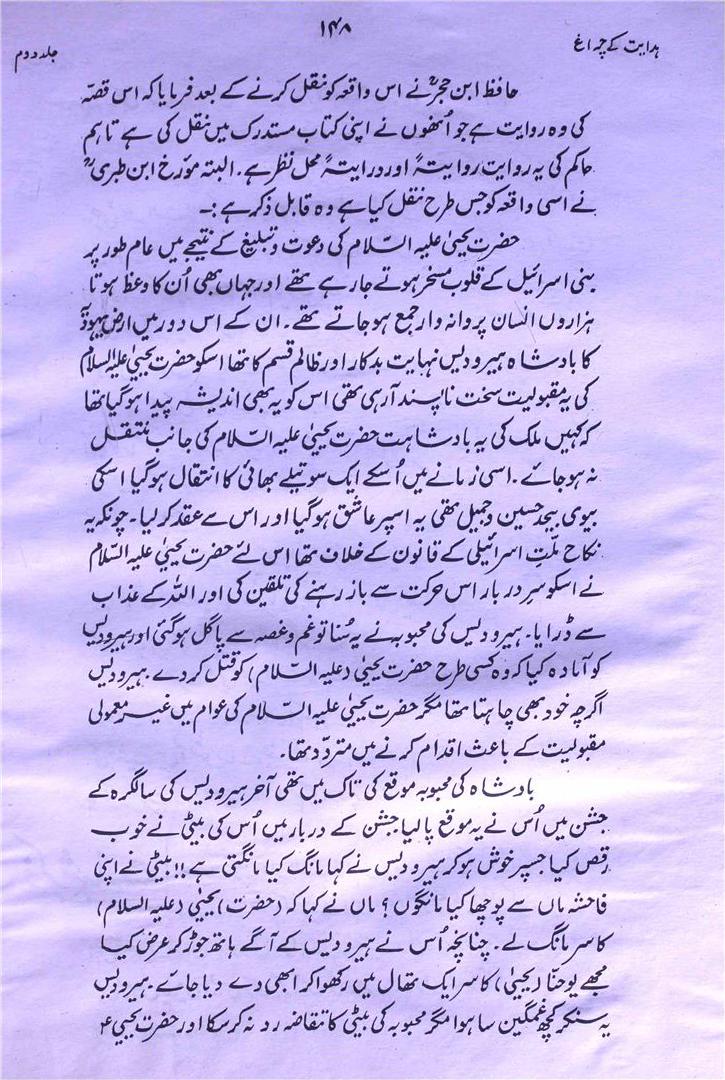 ہدایت کے چراغ
۱۴۸
جلد دوم
حافظ ابن حجرؒ نے اس واقعہ کو نقل کرنے کے بعد فرمایا کہ اس قصّہ
کی وہ روایت ہے جو اُنھوں نے اپنی کتاب مستدرک میں نقل کی ہے تاہم
حاکم کی یہ روایت روایتہً اور درایتہً محل نظر ہے۔ البتہ مؤرخ ابن طبریؒ
نے اسی واقعہ کو جس طرح نقل کیا ہے وہ قابل ذکر ہے :۔
حضرت یحییٰ علیہ السّلام کی دعوت و تبلیغ کے نتیجے میں عام طور پر
بنی اسرائیل کے قلوب مسخر ہوتے جارہے تھے اور جہاں بھی اُن کا وعظ ہوتا
ہزاروں انسان پروانہ وار جمع ہوجاتے تھے۔ ان کے اس دور میں ارض یہودیّہ
کا بادشاہ ہیرودیس نہایت بدکار اور ظالم قسم کا تھا اسکو حضرت یحییٰ علیہ السّلام
کی یہ مقبولیت سخت ناپسند آرہی تھی اس کو یہ بھی اندیشہ پیدا ہوگیا تھا
کہ کہیں ملک کی یہ بادشاہت حضرت یحییٰ علیہ السّلام کی جانب منتقل
نہ ہوجائے۔ اسی زمانے میں اُسکے ایک سوتیلے بھائی کا انتقال ہوگیا اسکی
بیوی بیحد حسین و جمیل تھی یہ اسپر عاشق ہوگیا اور اس سے عقد کرلیا۔ چونکہ یہ
نکاح ملّتِ اسرائیلی کے قانون کے خلاف تھا اس لئے حضرت یحییٰ علیہ السّلام
نے اسکو سرِ دربار اس حرکت سے باز رہنے کی تلقین کی اور اللہ کے عذاب
سے ڈرایا۔ ہیرودیس کی محبوبہ نے یہ سُنا تو غم و غصہ سے پاگل ہوگئی اور ہیرودیس
کو آمادہ کیا کہ وہ کسی طرح حضرت یحییٰ (علیہ السّلام) کو قتل کردے۔ ہیرودیس
اگرچہ خود بھی چاہتا تھا مگر حضرت یحییٰ علیہ السّلام کی عوام میں غیر معمولی
مقبولیت کے باعث اقدام کرنے میں متردّد تھا۔
بادشاہ کی محبوبہ موقع کی تاک میں تھی آخر ہیرودیس کی سالگرہ کے
جشن میں اُس نے یہ موقع پالیا جشن کے دربار میں اُس کی بیٹی نے خوب
رقص کیا جسپر خوش ہوکر ہیرودیس نے کہا مانگ کیا مانگتی ہے!! بیٹی نے اپنی
فاحشہ ماں سے پوچھا کیا مانگوں؟ ماں نے کہا کہ (حضرت) یحییٰ (علیہ السلام)
کا سر مانگ لے۔ چنانچہ اُس نے ہیرودیس کے آگے ہاتھ جوڑ کر عرض کیا
مجھے یوحنّا (یحییٰ) کا سر ایک تھال میں رکھوا کر ابھی دے دیا جائے۔ ہیرودیس
یہ سنکر کچھ غمگین سا ہوا مگر محبوبہ کی بیٹی کا تقاضہ رد نہ کرسکا اور حضرت یحییٰ ؑ